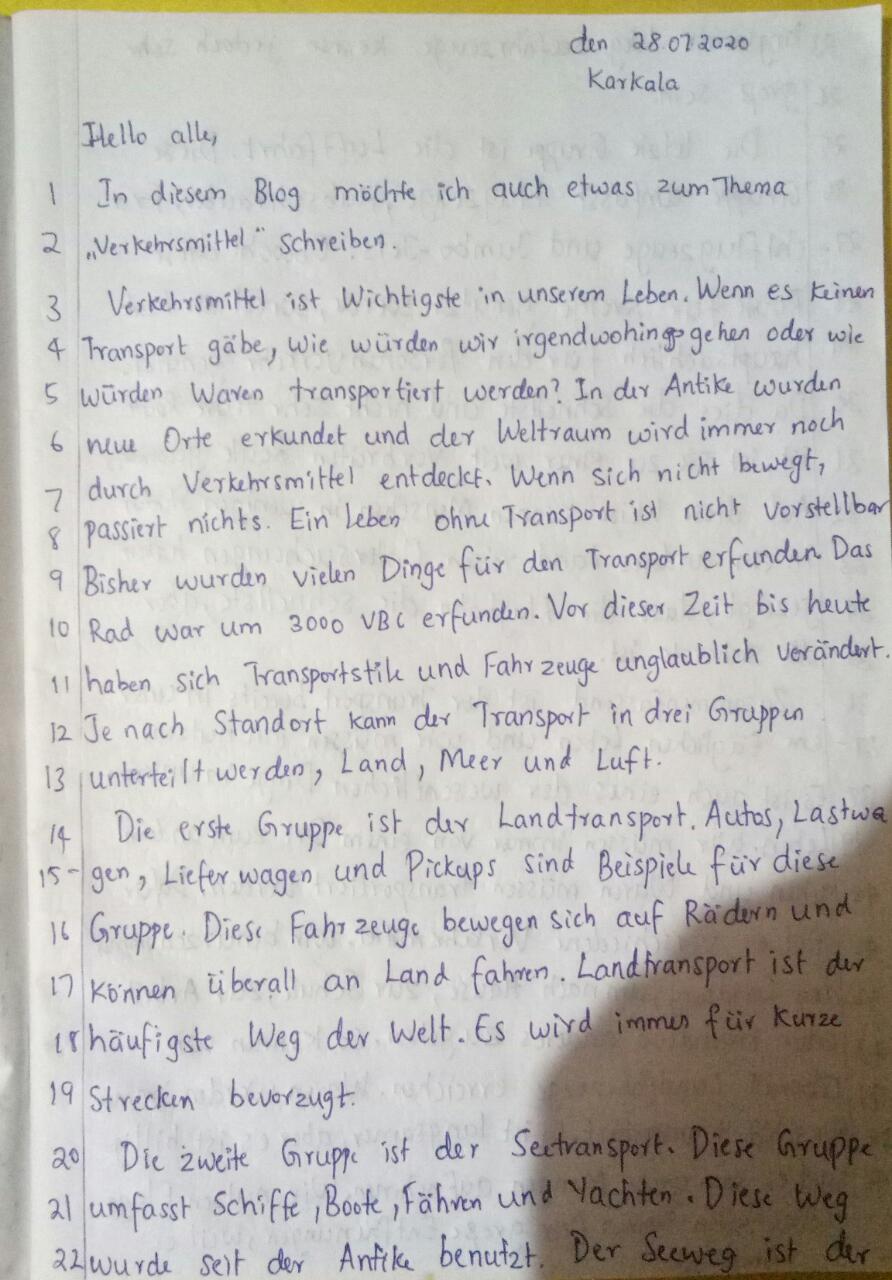 den 28.07 2020
Karkala
Hello alle,
1 In diesem Blog möchte ich auch etwas zum Thema
2 „Verkehrsmittel" Schreiben.
3 Verkehrsmittel ist Wichtigste in unserem Leben. Wenn es keinen
4 Transport gäbe, wie würden wir irgendwohin gehen oder wie
5 würden Waren transportiert werden? In der Antike wurden
6 neue Orte erkundet und der Weltraum wird immer noch
7 durch Verkehrsmittel entdeckt. Wenn sich nicht bewegt,
8 passiert nichts. Ein Leben ohne Transport ist nicht vorstellbar
9 Bisher wurden vielen Dinge für den Transport erfunden. Das
10 Rad war um 3000 VBC erfunden. Vor dieser Zeit bis heute
11 haben sich Transportstik und Fahrzeuge unglaublich verändert.
12 Je nach Standort kann der Transport in drei Gruppen
13 unterteilt werden, Land, Meer und Luft.
14 Die erste Gruppe ist der Landtransport. Autos, Lastwa
15 - gen, Lieferwagen und Pickups sind Beispiele für diese
16 Gruppe. Diese Fahrzeuge bewegen sich auf Rädern und
17 können überall an Land fahren. Landtransport ist der
18 häufigste Weg der Welt. Es wird immer für Kurze
19 Strecken bevorzugt.
20 Die zweite Gruppe ist der Seetransport. Diese Gruppe
21 umfasst Schiffe, Boote, Fähren und Yachten. Diese Weg
22 wurde seit der Antike benutzt. Der Seeweg ist der